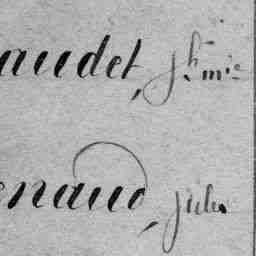 audet, jh mie
enaud, jules